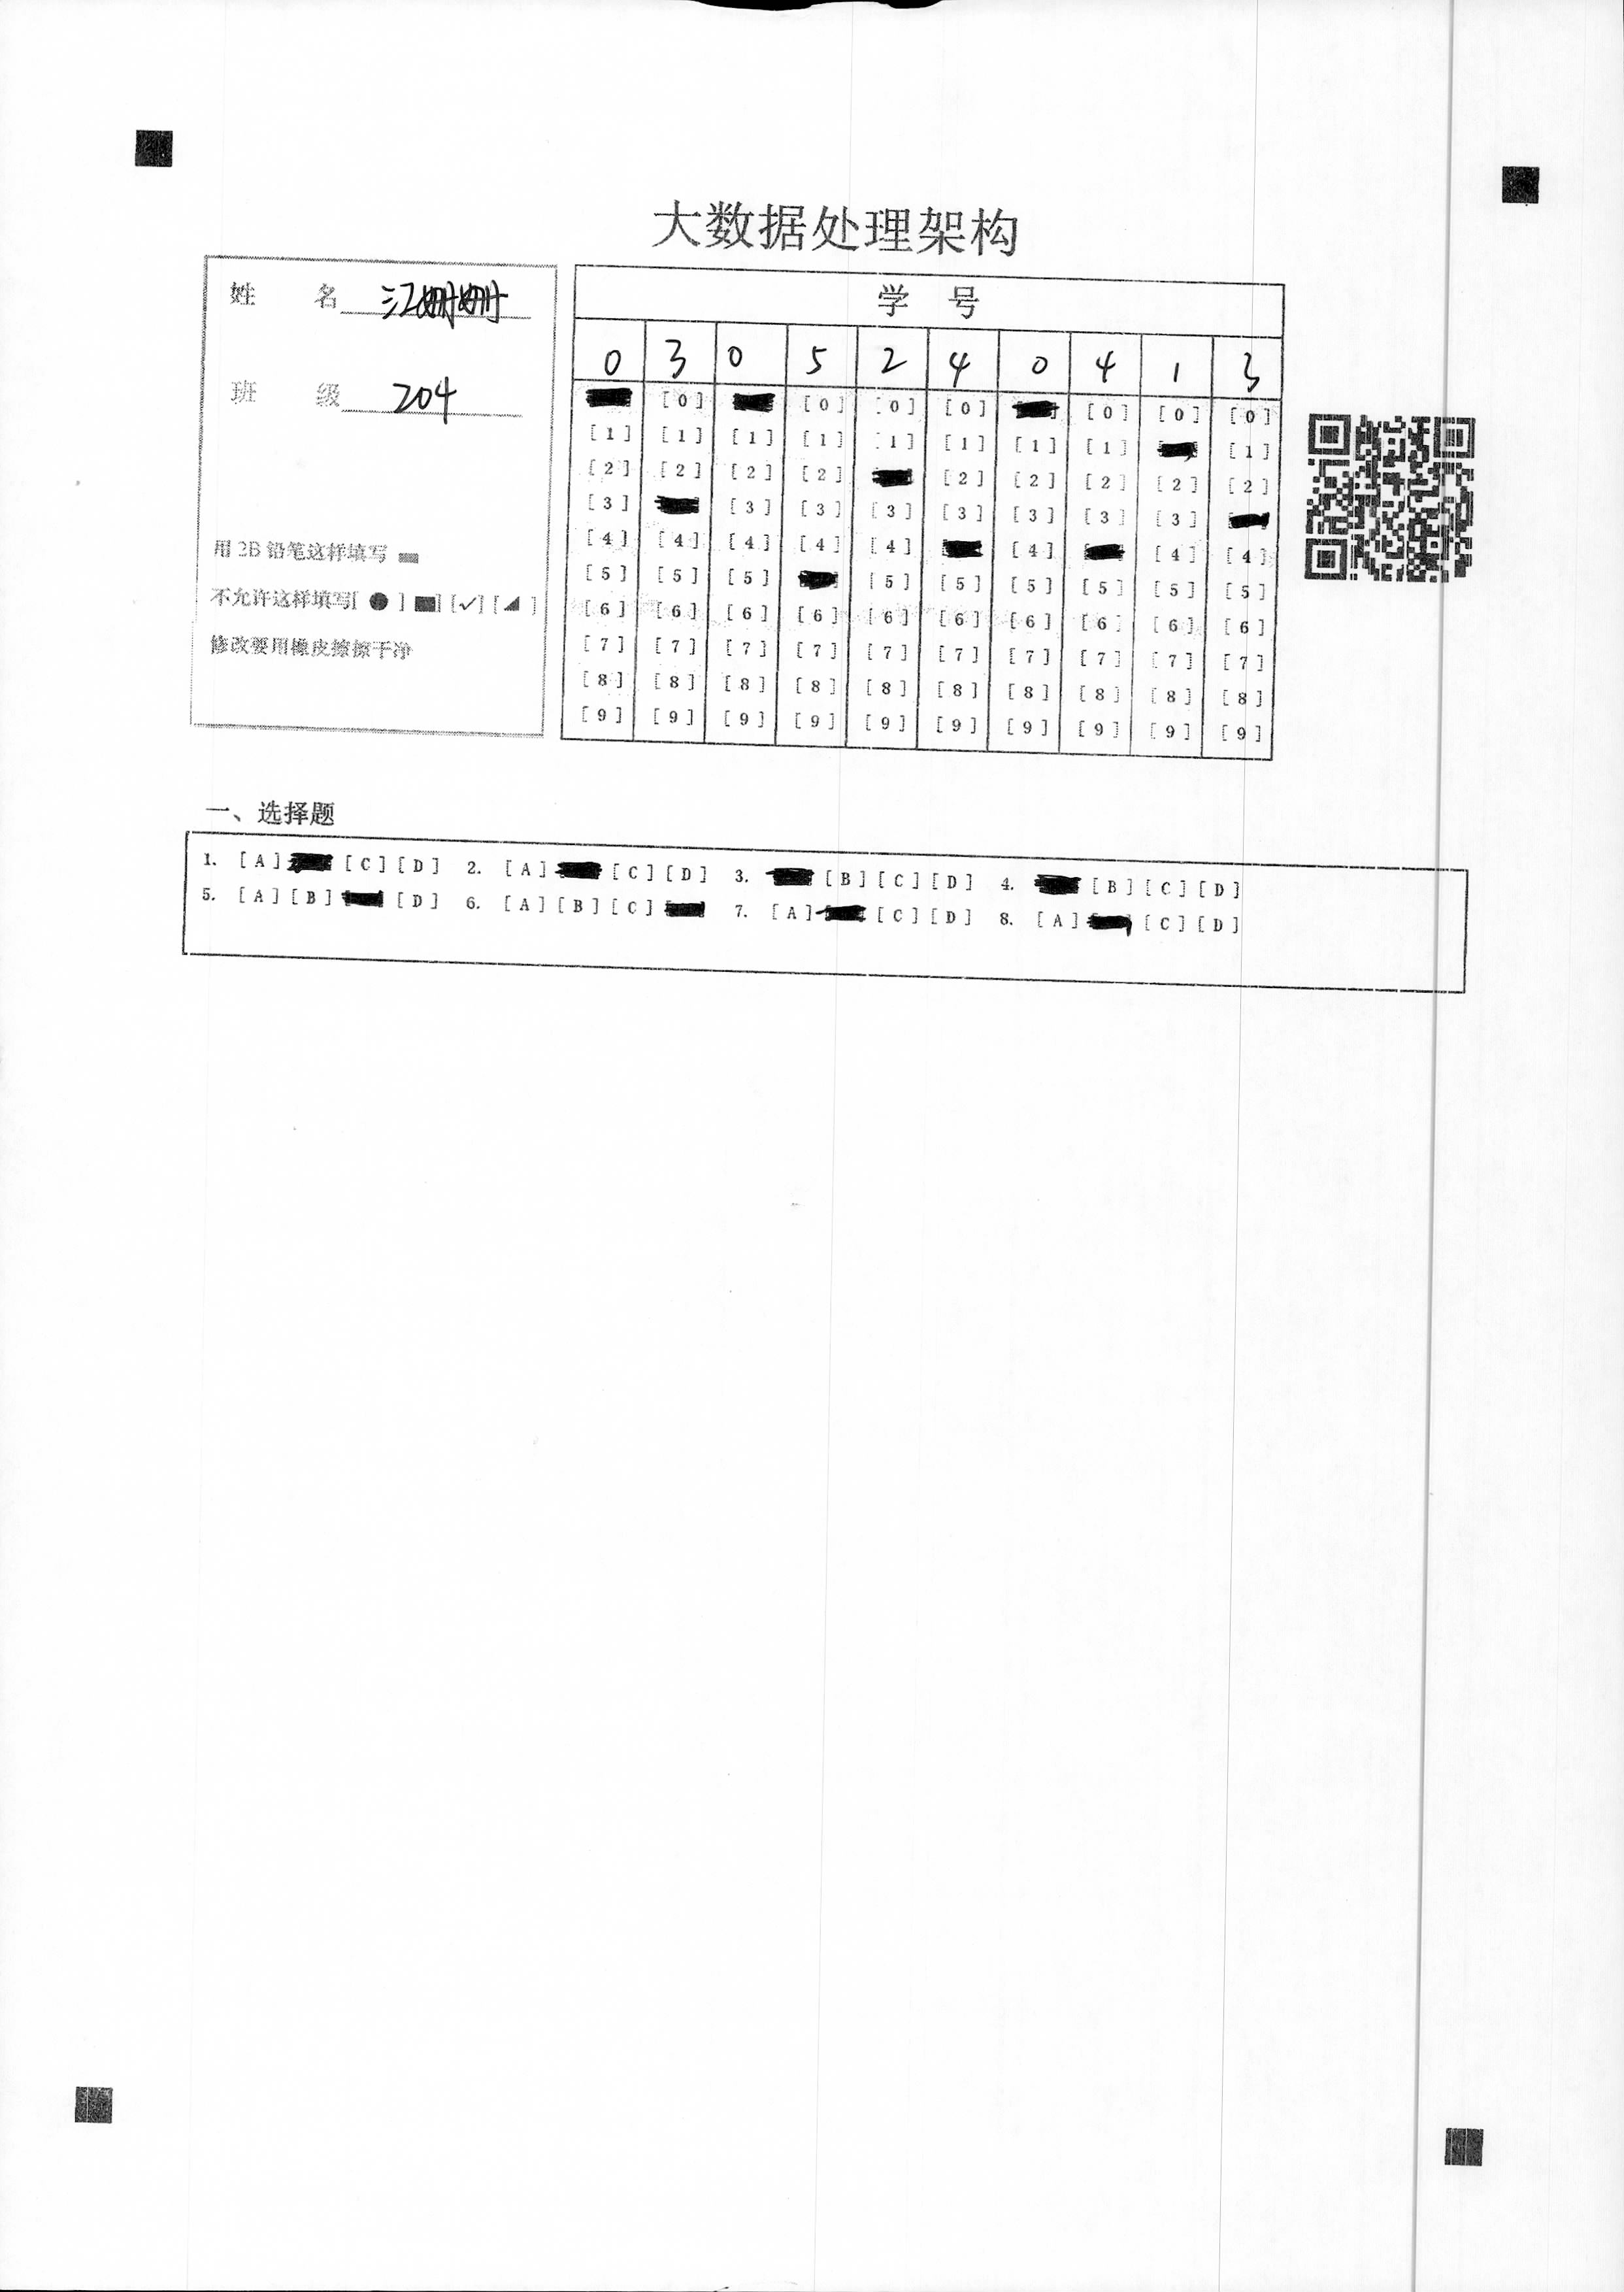 大数据处理架构
姓 名 江姗姗
班 级 204
用 2B 铅笔这样填写
不允许这样填写[ ● ] [■] [✓] [◢ ]
修改要用橡皮擦擦干净
学 号
0 3 0 5 2 4 0 4 1 3
[0] [0] [0] [0] [0] [0] [0]
[1] [1] [1] [1] [1] [1] [1] [1] [1]
[2] [2] [2] [2] [2] [2] [2] [2] [2]
[3] [3] [3] [3] [3] [3] [3] [3]
[4] [4] [4] [4] [4] [4] [4] [4]
[5] [5] [5] [5] [5] [5] [5] [5] [5]
[6] [6] [6] [6] [6] [6] [6] [6] [6] [6]
[7] [7] [7] [7] [7] [7] [7] [7] [7] [7]
[8] [8] [8] [8] [8] [8] [8] [8] [8] [8]
[9] [9] [9] [9] [9] [9] [9] [9] [9] [9]
一、选择题
1. [A] [C] [D] 2. [A] [C] [D] 3. [B] [C] [D] 4. [B] [C] [D]
5. [A] [B] [D] 6. [A] [B] [C] 7. [A] [C] [D] 8. [A] [C] [D]